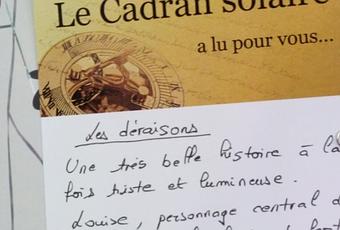 Le Cadran solaire
a lu pour vous...
Les déraisons
Une très belle histoire à la
fois triste et lumineuse.
Louise, personnage central d